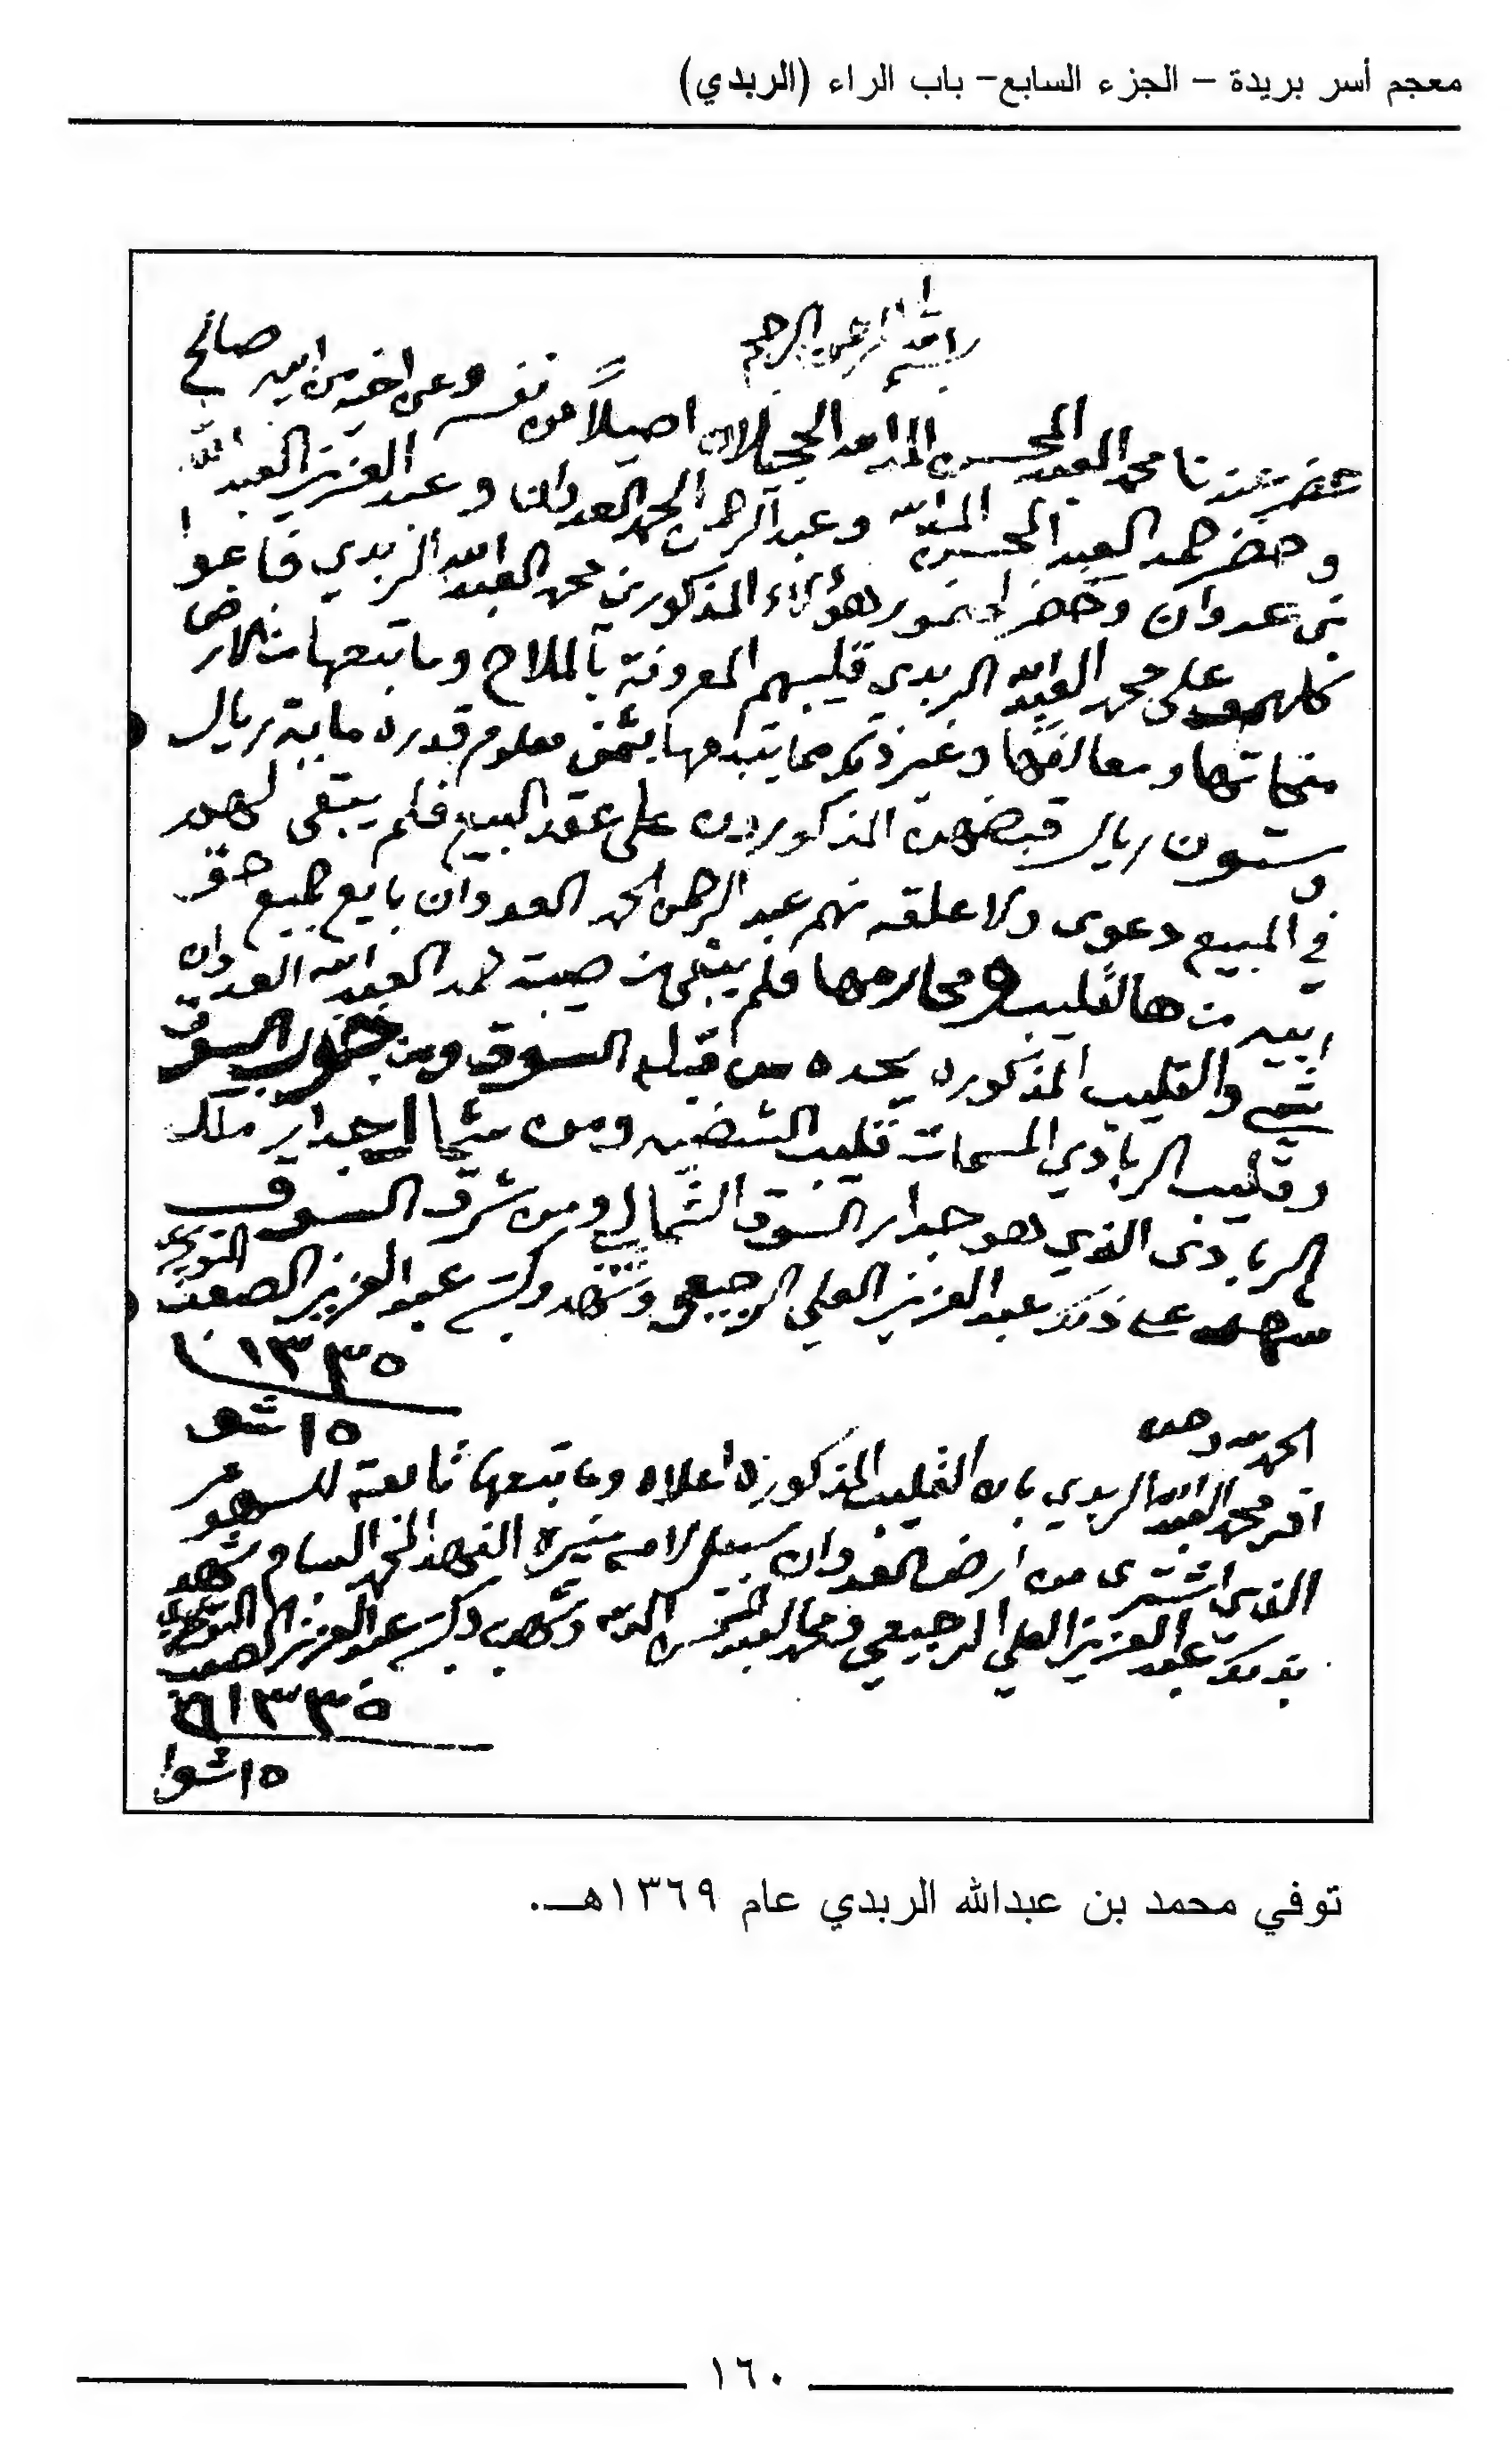 معجم أسر بريدة – الجزء السابع– باب الراء (الربدي)
بسم الله الرحمن الرحيم
حضر عندنا محمد العبد المحسن الحجيلان اصيلاً من نفسه وعن اخيه من ابيه صالح
وحضر حمد العبد المحسن وعبد الرحمن الحمد العدوان وعبد العزيز العبد الله
بن عدوان وحضر لحضور هؤلاء المذكورين محمد العبد الله الربدي فباعوا
كلهم على محمد العبد الله الربدي قليبهم المعروفة بالملاح وما تبعها من الارض
منحاتها ومعالقها وغير ذلك مما يتبعها بثمن معلوم قدره ماية ريال
وستون ريال قبضهن المذكورون على عقد البيع فلم يبقى لهم
في المبيع دعوى ولا علقه نهم عبد الرحمن الحمد العدوان بايع جميع حق
ابيه من هالقليب ومحارمها فلم يبقى من صيبة حمد العبد الله العدوان
شي والقليب المذكوره يحده من قبله السوق ومن جنوب السوق
وقليب الربادي المسمات قليب ومن شمال جدار ملك
الربادى الذي هو جدار السوق الشمالي ومن شرق السوق
شهد على ذلك عبد العزيز العلي الرجيعي وشهد وكتبه عبد العزيز الصعب التويجري
١٣٣٥
١٥ شو
الحمد لله وحده
اقر محمد العبد الله الربدي بان القليب المذكوره اعلاه وما تبعها تابعة للسهم
الذي اشترى من ارض العدوان سبيل لامه منيره الفهد شهد
بذلك عبد العزيز العلي الرجيعي ومحمد العبد وشهد وكتبه عبد العزيز الصعب التويجري
١٣٣٥
١٥ شوا
توفي محمد بن عبدالله الربدي عام ١٣٦٩هـ.
١٦٠